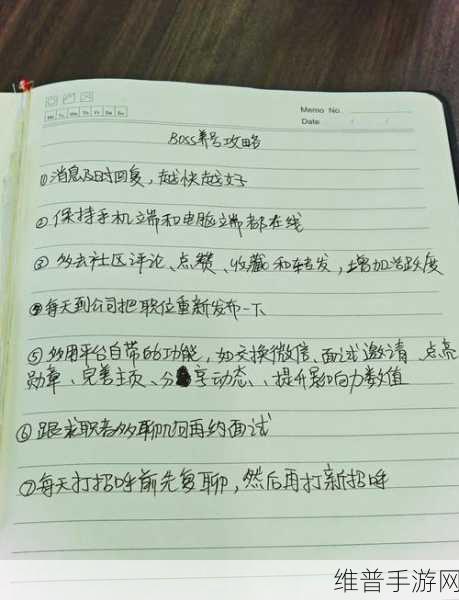 Memo No.
Mo Tu We Th Fr Sa Su
Date / /
Boss养号攻略
①消息及时回复，越快越好
②保持手机端和电脑端都在线
③多去社区评论、点赞、收藏和转发，增加活跃度
④每天到公司把职位重新发布一下
⑤多用平台自带的功能，如交换微信、面试邀请、点亮
勋章、完善主页、分享动态、提升影响力数值
⑥跟求职者多聊几句再约面试
⑦每天打招呼前先复聊，然后再打新招呼
维普手游网